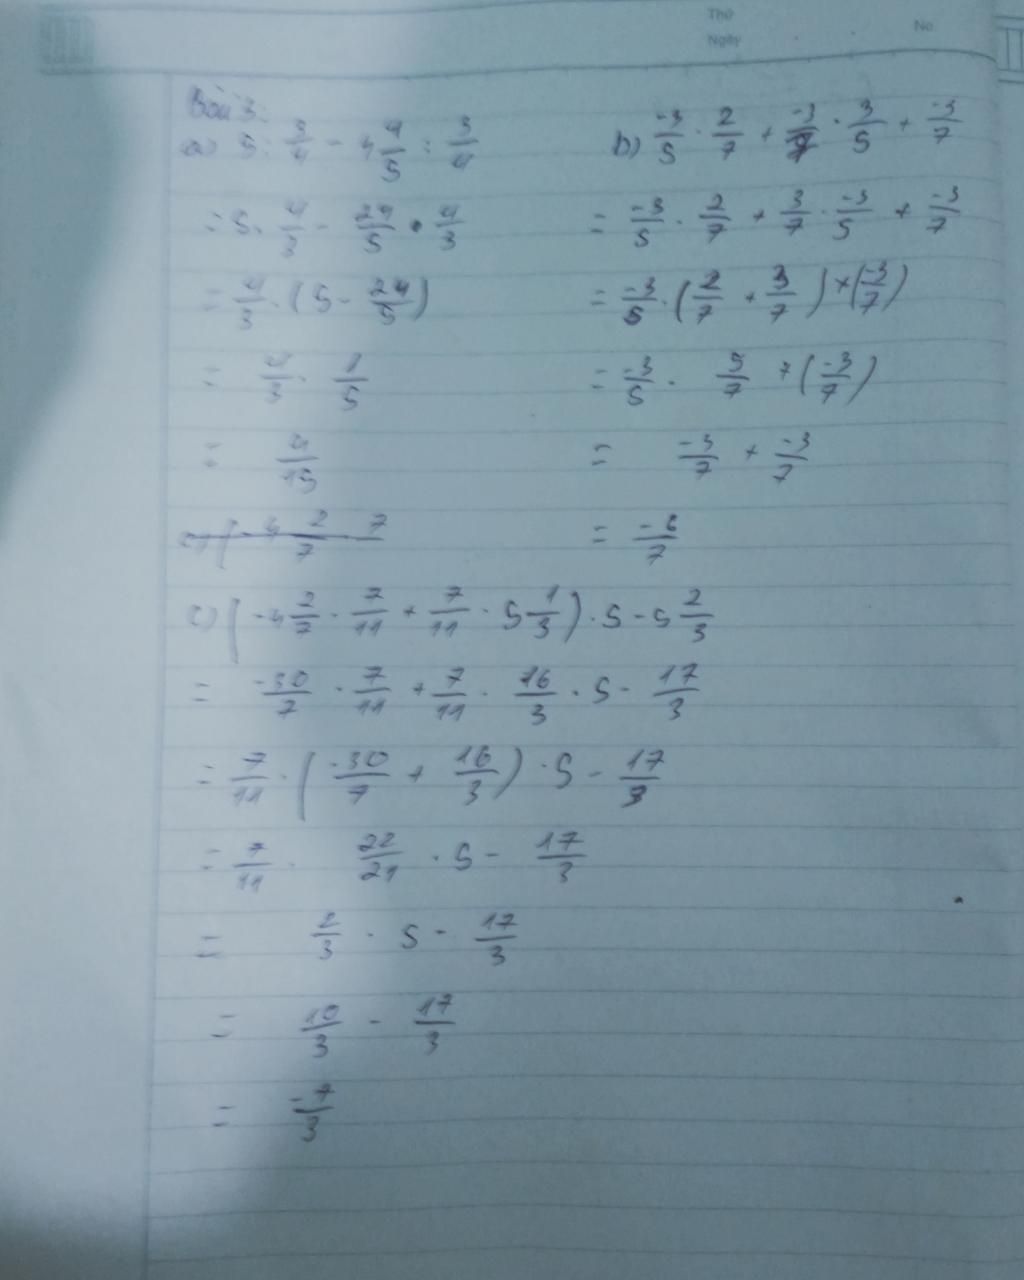 Thứ
Ngày
No
Bài 3:
a) 5 : 3/4 - 4 4/5 : 3/4
= 5 . 4/3 - 24/5 . 4/3
= 4/3 . (5 - 24/5)
= 4/3 . 1/5
= 4/15
b) -3/5 . 2/7 + -3/7 . 3/5 + -3/7
= -3/5 . 2/7 + 3/7 . -3/5 + -3/7
= -3/5 . (2/7 + 3/7) + (-3/7)
= -3/5 . 5/7 + (-3/7)
= -3/7 + -3/7
= -6/7
c) (-4 2/7 . 7/11 + 7/11 . 5 1/3) . 5 - 5 2/3
= -30/7 . 7/11 + 7/11 . 16/3 . 5 - 17/3
= 7/11 . (-30/7 + 16/3) . 5 - 17/3
= 7/11 . 22/21 . 5 - 17/3
= 2/3 . 5 - 17/3
= 10/3 - 17/3
= -7/3